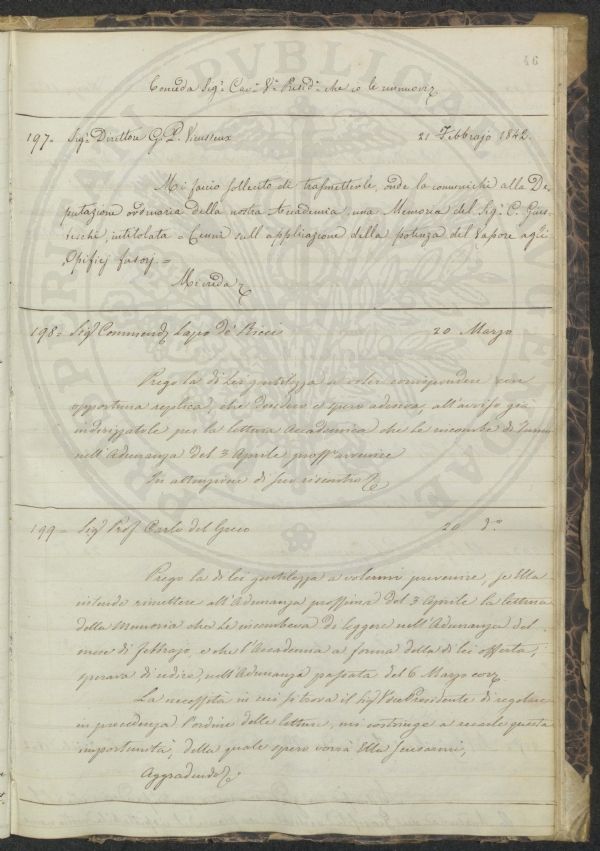 46
Conceda Sig.r Cav.e V.e Presid.e che io le rinnovi &
197= Sig.r Direttore G. P. Vieusseux 21 Febbrajo 1842.
Mi facio sollecito di trasmetterle, onde la comunichi alla De-
putazione ordinaria della nostra Accademia, una Memoria del Sig.r C.
intitolata = Cenni sull'applicazione della potenza del Vapore agli
Opificj =
Mi creda &
198= Sig.r Commend.e Lapo de' Ricci 20 Marzo
Prego la di Lei gentilezza a voler corrispondere con
opportuna replica, che desidero e spero adesiva, all'avviso già
indirizzatole per la lettura Accademica che le incombe di
nell'Adunanza del 3 Aprile pross.o avvenire
In attenzione di suo riscontro &
199= Sig.r Prof. Carlo del Greco 20 d.o
Prego la di lei gentilezza a volermi prevenire, se Ella
intende rimettere all'Adunanza prossima del 3 Aprile la lettura
della Memoria che Le incombeva di leggere nell'Adunanza del
mese di Febbrajo, e che l'Accademia a forma della di lei offerta,
sperava di udire, nell'Adunanza passata del 6 Marzo corr.
La necessità in cui si trova il Sig.r Vice Presidente di regolare
in precedenza l'ordine delle letture, mi costringe a recarle questa
importunità, della quale spero vorrà Ella scusarmi,
Aggradendo &